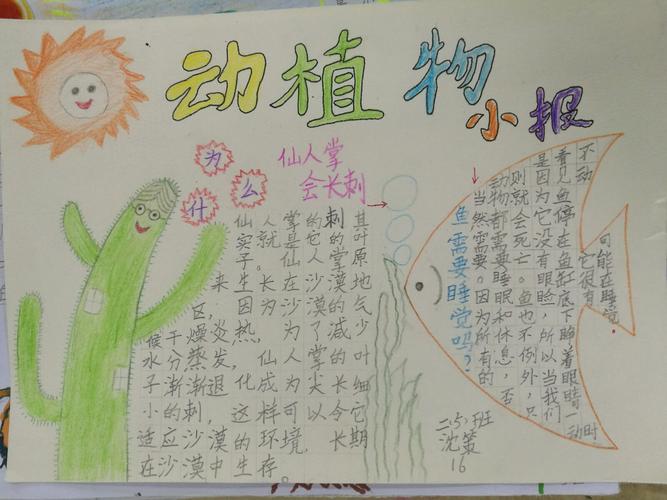 动植物
小报
为什么
仙人掌
会长刺
仙人掌的刺其
实就是它的叶
子。仙人掌原
来生长在沙漠地
区,因为沙漠的气
候干燥炎热,为了减少
水分蒸发,仙人掌的叶
子渐渐退化成为尖长细
小的刺,这样可以令它
适应沙漠的环境,长期
在沙漠中生存。
鱼需要睡觉吗?
当然需要。因为所有的
动物都需要睡眠和休息,否
则就会死亡。鱼也不例外,只
是因为它没有眼睑,所以当我们
看见鱼停在鱼缸底下睁着眼睛一动
不动时
它很有
可能在睡觉。
二(5)班
沈策
16